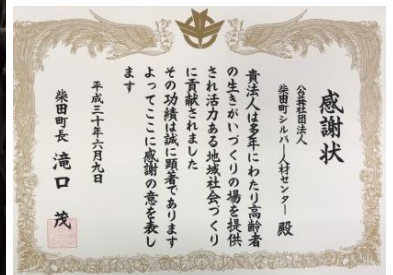 感謝状
公益社団法人
柴田町シルバー人材センター 殿
貴法人は多年にわたり高齢者
の生きがいづくりの場を提供
され活力ある地域社会づくり
に貢献されました
その功績は誠に顕著であります
よってここに感謝の意を表し
ます
平成三十年六月九日
柴田町長 滝口 茂